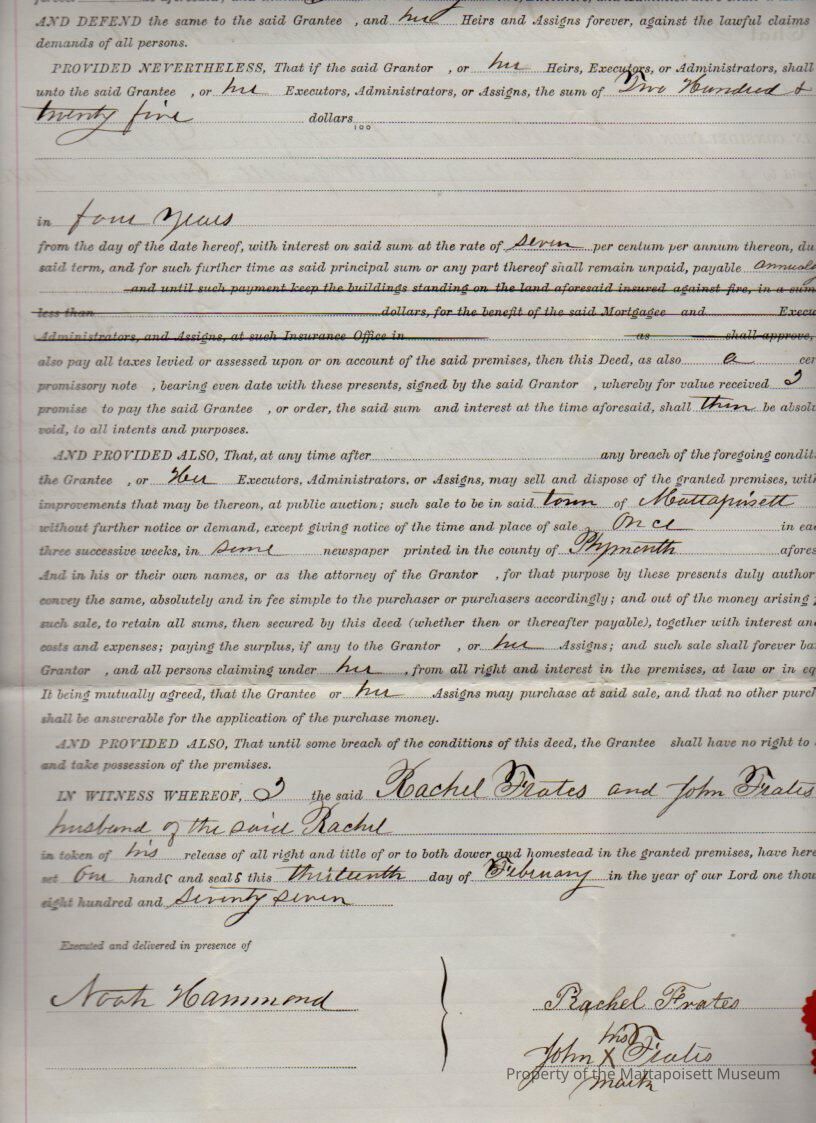 AND DEFEND the same to the said Grantee , and her Heirs and Assigns forever, against the lawful claims
demands of all persons.
PROVIDED NEVERTHELESS, That if the said Grantor , or her Heirs, Executors, or Administrators, shall
unto the said Grantee , or her Executors, Administrators, or Assigns, the sum of Two Hundred &
twenty five dollars 100
in four years
from the day of the date hereof, with interest on said sum at the rate of seven per centum per annum thereon, du
said term, and for such further time as said principal sum or any part thereof shall remain unpaid, payable annually
and until such payment keep the buildings standing on the land aforesaid insured against fire, in a sum
less than dollars, for the benefit of the said Mortgagee and Execu
Administrators, and Assigns, at such Insurance Office in as shall approve,
also pay all taxes levied or assessed upon or on account of the said premises, then this Deed, as also a cer
promissory note , bearing even date with these presents, signed by the said Grantor , whereby for value received I
promise to pay the said Grantee , or order, the said sum and interest at the time aforesaid, shall then be absolu
void, to all intents and purposes.
AND PROVIDED ALSO, That, at any time after any breach of the foregoing condit
the Grantee , or Her Executors, Administrators, or Assigns, may sell and dispose of the granted premises, with
improvements that may be thereon, at public auction; such sale to be in said town of Mattapoisett
without further notice or demand, except giving notice of the time and place of sale Once in eac
three successive weeks, in some newspaper printed in the county of Plymouth afores
And in his or their own names, or as the attorney of the Grantor , for that purpose by these presents duly author
convey the same, absolutely and in fee simple to the purchaser or purchasers accordingly; and out of the money arising
such sale, to retain all sums, then secured by this deed (whether then or thereafter payable), together with interest an
costs and expenses; paying the surplus, if any to the Grantor , or her Assigns; and such sale shall forever ba
Grantor , and all persons claiming under her , from all right and interest in the premises, at law or in eq
It being mutually agreed, that the Grantee or her Assigns may purchase at said sale, and that no other purch
shall be answerable for the application of the purchase money.
AND PROVIDED ALSO, That until some breach of the conditions of this deed, the Grantee shall have no right to
and take possession of the premises.
IN WITNESS WHEREOF, I the said Rachel Frates and John Frates
husband of the said Rachel
in token of his release of all right and title of or to both dower and homestead in the granted premises, have here
set our hands and seals this thirteenth day of February in the year of our Lord one thou
eight hundred and seventy seven
Executed and delivered in presence of
Noah Hammond
Rachel Frates
his
John X Frates
mark
Property of the Mattapoisett Museum